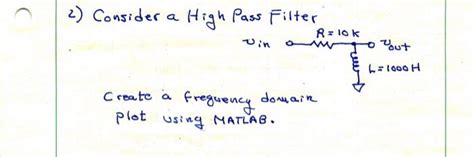 2) Consider a High Pass Filter
R = 10K
Vin
Vout
L = 1000H
Create a frequency domain
plot using MATLAB.